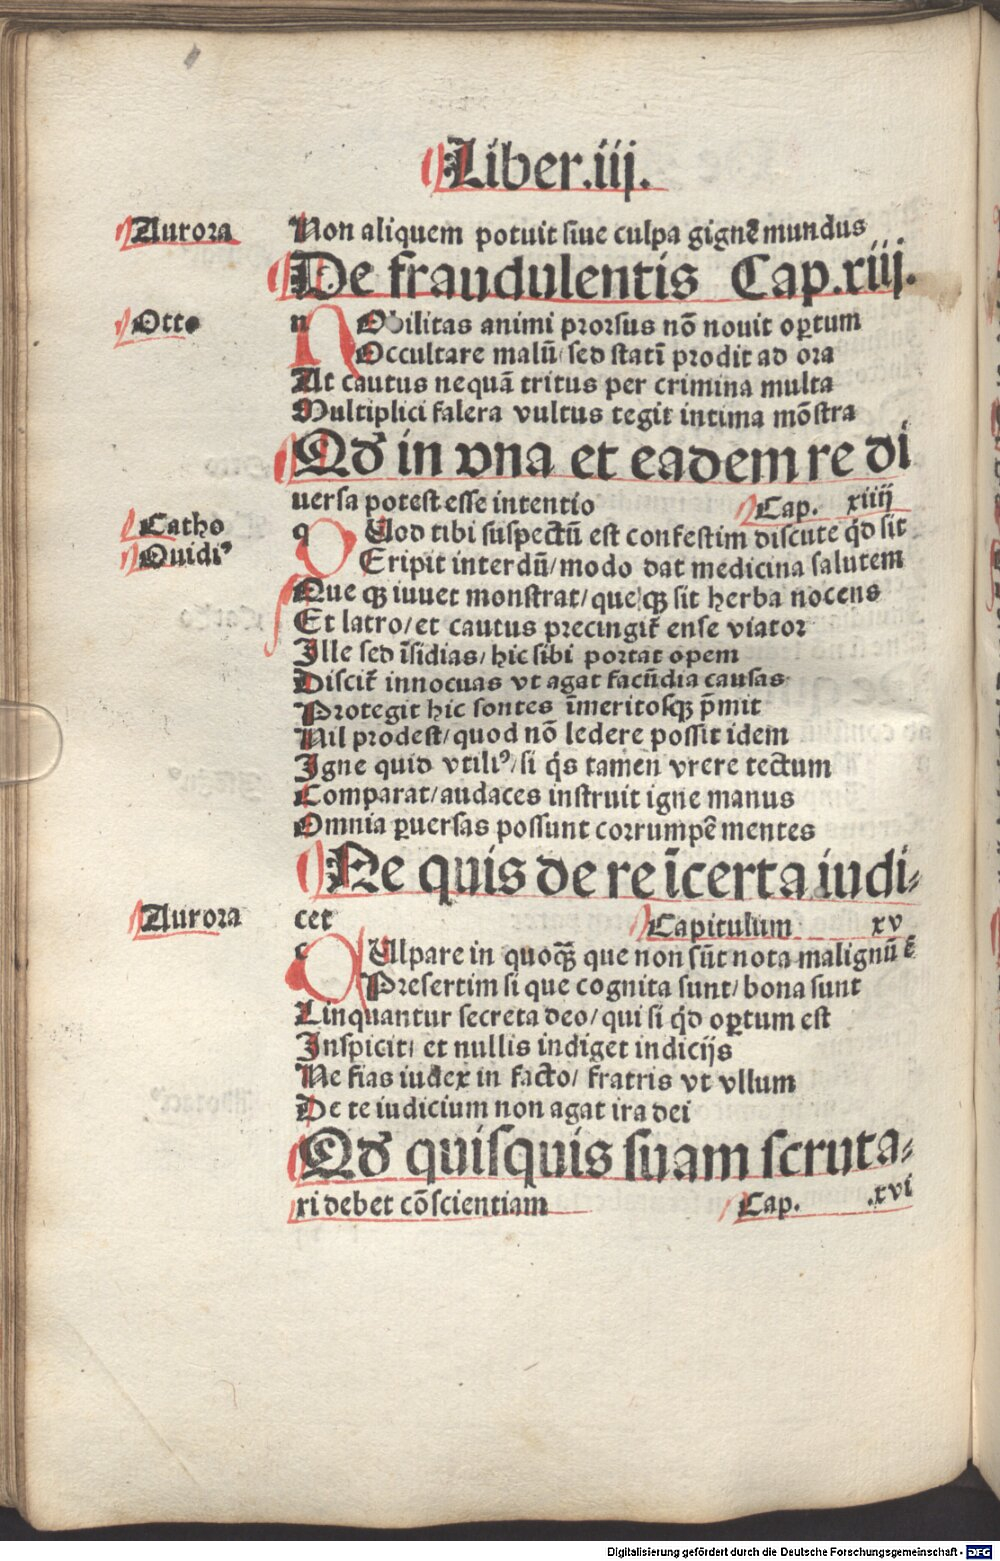 Liber.iij.
Aurora Non aliquem potuit siue culpa gignẽ mundus
De fraudulentis Cap.xiij.
Otto n Obilitas animi prorsus nõ nouit opertum
Occultare malũ/sed statĩ prodit ad ora
At cautus nequã tritus per crimina multa
Multiplici falera vultus tegit intima mõstra
Qđ in vna et eadem re di
uersa potest esse intentio Cap. xiiij
Catho q Uod tibi suspectũ est confestim discute qđ sit
Ouidiꝰ Eripit interdũ/modo dat medicina salutem
Que qꝫ iuuet monstrat/que qꝫ sit herba nocens
Et latro/et cautus precingit̃ ense viator
Ille sed ĩsidias/hic sibi portat opem
Discit̃ innocuas vt agat facũdia causas
Protegit hic sontes ĩmeritosqꝫ p̃mit
Nil prodest/quod nõ ledere possit idem
Igne quid vtiliꝰ/si q̃s tamen vrere tectum
Comparat/audaces instruit igne manus
Omnia ꝑuersas possunt corrumpẽ mentes
Ne quis de re ĩcerta iudi⸗
Aurora cet Capitulum xv
c Ulpare in quoqꝫ̃ que non sũt nota malignũ ẽ
Presertim si que cognita sunt/bona sunt
Linquantur secreta deo/qui si qđ opꝑtum est
Inspicit/et nullis indiget indicijs
Ne fias iudex in facto/fratris vt vllum
De te iudicium non agat ira dei
Qđ quisquis suam scruta⸗
ri debet cõscientiam Cap. .xvi
Digitalisierung gefördert durch die Deutsche Forschungsgemeinschaft - DFG